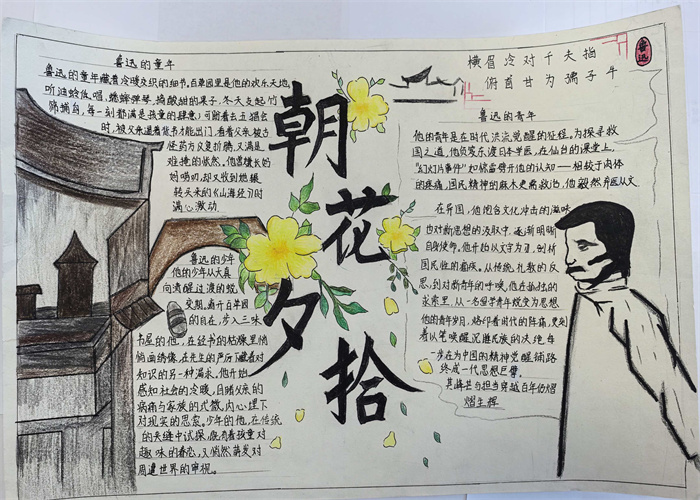 鲁迅的童年
鲁迅的童年藏着冷暖交织的细节,百草园里是他的欢乐天地,
听油蛉低唱,蟋蟀弹琴,摘酸甜的果子,冬天支起竹
筛捕鸟,每一刻都满是孩童的肆意;可盼着去五猖会
时,被父亲逼着背书才能出门,看着父亲被古
怪药方反复折腾,又满是
难掩的怅然。他虽嫌长妈
妈唠叨,却又收到她辗
转弄来的《山海经》时
满心激动.
鲁迅的少年
他的少年从天真
向清醒过渡的蜕
变期。离开百草园
的自在,步入三味
书屋的他,在经书的枯燥里悄
悄画绣像,在先生的严厉下藏着对
知识的另一种渴求。他开始
感知社会的冷暖,目睹父亲的
病痛与家族的式微,内心埋下
对现实的思索。少年的他,在传统
的夹缝中试探,既有着孩童对
趣味的眷恋,又悄然萌发对
周遭世界的审视。
朝花夕拾
横眉冷对千夫指
俯首甘为孺子牛
鲁迅
鲁迅的青年
他的青年是在时代洪流觉醒的征程。为探寻救
国之道,他负笈东渡日本学医,在仙台的课堂上,
"幻灯片事件"如惊雷劈开他的认知——相较于肉体
的疼痛,国民精神的麻木更需救治,他毅然弃医从文.
在异国,他饱含文化冲击的滋味
也对新思想的汲取中,逐渐明晰
自身使命。他开始以文字为刃,剖析
国民性的痼疾。从传统礼教的反
思,到对新青年的呼唤,他在孤独的
求索里,从一名留学青年蜕变为思想
他的青年岁月,烙印着时代的阵痛,更刻
着以笔唤醒沉沦民族的决绝,每
一步在为中国的精神觉醒铺路
终成一代思想巨擘,
其锋芒与担当穿越百年仍熠
熠生辉